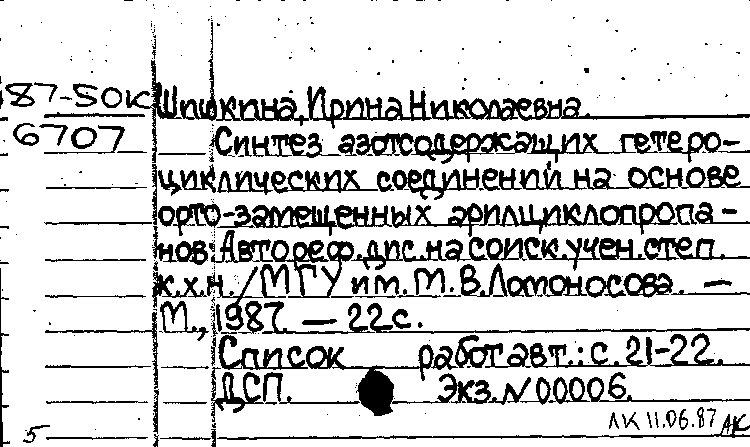 87-50к Шишкина, Ирина Николаевна.
6707 Синтез азотсодержащих гетеро-
циклических соединений на основе
орто-замещенных арилциклопропа-
нов: Автореф. дис. на соиск. учен. степ.
к.х.н. / МГУ им. М.В. Ломоносова. —
М., 1987. — 22 с.
Список работ авт.: с. 21-22.
ДСП. Экз. N 00006.
ЛК 11.06.87 ЛК
5